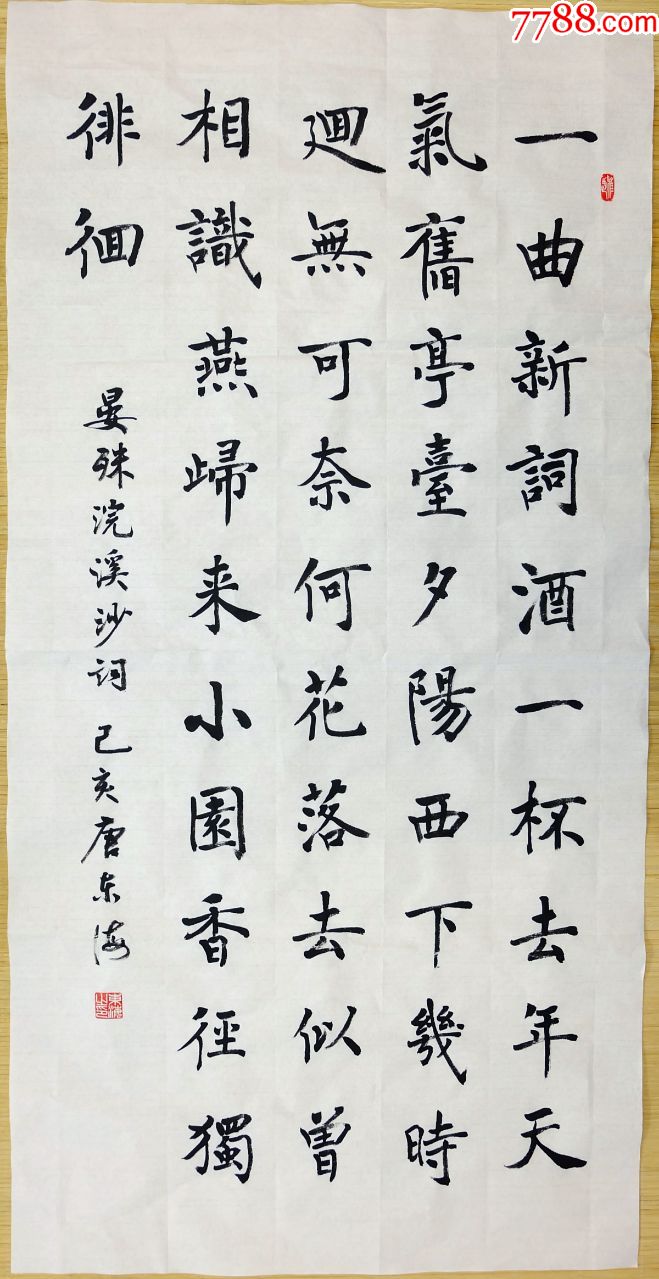 7788.com
一曲新詞酒一杯去年天
氣舊亭臺夕陽西下幾時
廻無可奈何花落去似曾
相識燕歸来小園香徑獨
徘徊
晏殊浣溪沙詞 己亥唐东海